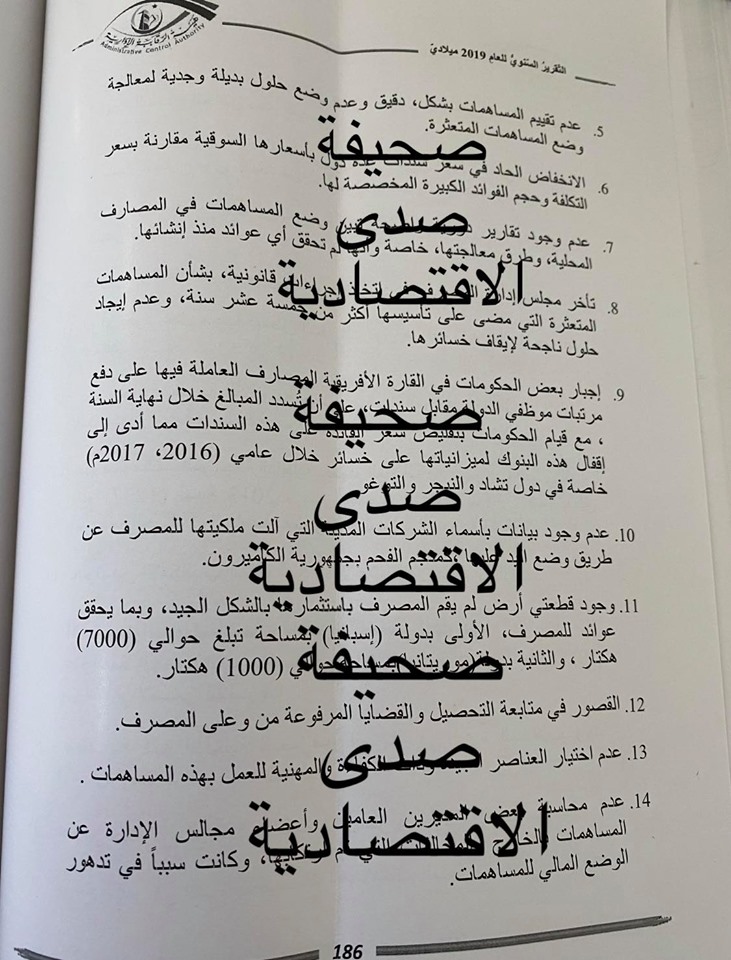 هيئة الرقابة الإدارية
Administrative Control Authority
التقرير السنوي للعام 2019 ميلادي
5. عدم تقييم المساهمات بشكل، دقيق وعدم وضع حلول بديلة وجدية لمعالجة
وضع المساهمات المتعثرة.
صحيفة
6. الانخفاض الحاد في سعر سندات عدة دول بأسعارها السوقية مقارنة بسعر
التكلفة وحجم الفوائد الكبيرة المخصصة لها.
صدى
7. عدم وجود تقارير تبين وضع المساهمات في المصارف
المحلية، وطرق معالجتها، خاصة وأنها لم تحقق أي عوائد منذ إنشائها.
الاقتصادية
8. تأخر مجلس إدارة في اتخاذ إجراءات قانونية، بشأن المساهمات
المتعثرة التي مضى على تأسيسها أكثر من خمسة عشر سنة، وعدم إيجاد
حلول ناجحة لإيقاف خسائرها.
9. إجبار بعض الحكومات في القارة الأفريقية المصارف العاملة فيها على دفع
مرتبات موظفي الدولة مقابل سندات، على أن تُسدد المبالغ خلال نهاية السنة
صحيفة
، مع قيام الحكومات بتقليص سعر الفائدة على هذه السندات مما أدى إلى
إقفال هذه البنوك لميزانياتها على خسائر خلال عامي (2016، 2017م)
خاصة في دول تشاد والنيجر والتوغو
صدى
10. عدم وجود بيانات بأسماء الشركات المدينة التي آلت ملكيتها للمصرف عن
طريق وضع اليد عليها، كمنجم الفحم بجمهورية الكاميرون.
الاقتصادية
11. وجود قطعتي أرض لم يقم المصرف باستثمارها بالشكل الجيد، وبما يحقق
عوائد للمصرف، الأولى بدولة (إسبانيا) بمساحة تبلغ حوالي (7000)
هكتار ، والثانية بدولة (موريتانيا) بمساحة حوالي (1000) هكتار.
صحيفة
12. القصور في متابعة التحصيل والقضايا المرفوعة من وعلى المصرف.
13. عدم اختيار العناصر الكفاءة والمهنية للعمل بهذه المساهمات .
صدى
14. عدم محاسبة بعض المديرين العامين وأعضاء مجالس الإدارة عن
المساهمات وكانت سبباً في تدهور
الاقتصادية
الوضع المالي للمساهمات.
186